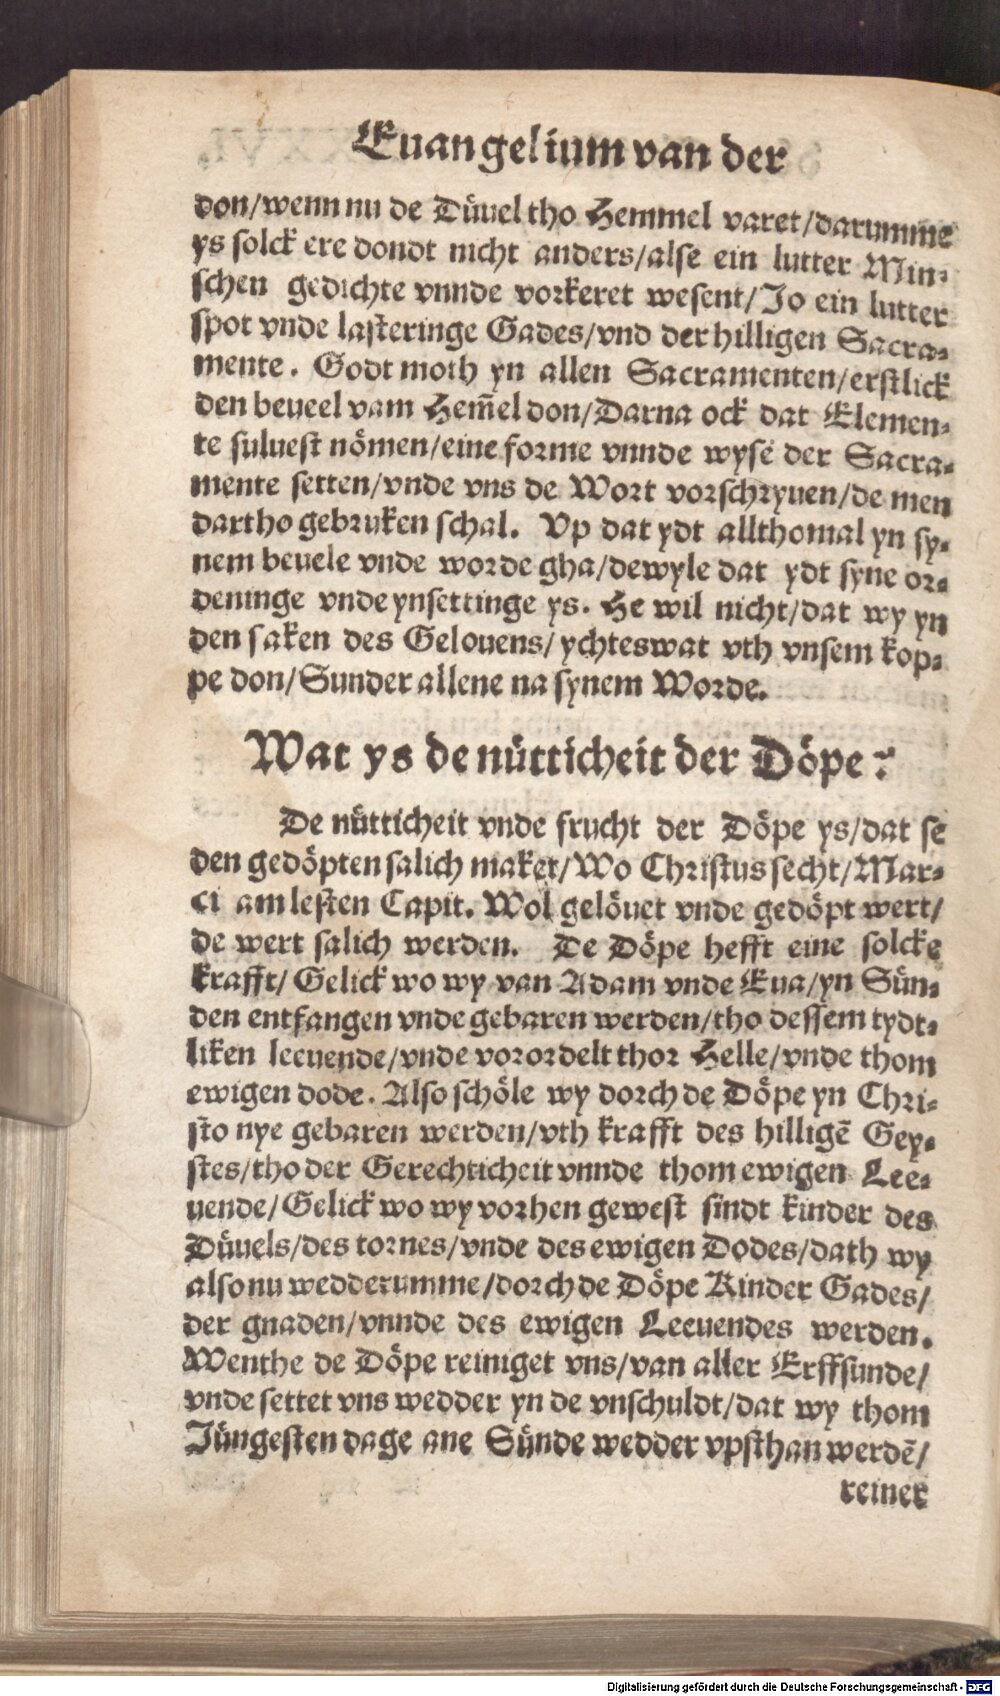 Euangelium van der
don/wenn nu de Düuel tho Hemmel varet/darumme
ys solck ere dondt nicht anders/alse ein lutter Min-
schen gedichte vnnde vorkeret wesent/Jo ein lutter
spot vnde lasteringe Gades/vnd der hilligen Sacra-
mente. Godt moth yn allen Sacramenten/erstlick
den beueel vam Hem̃el don/Darna ock dat Elemen-
te suluest nömen/eine forme vnnde wyse der Sacra-
mente setten/vnde vns de Wort vorschryuen/de men
dartho gebruken schal. Vp dat ydt allthomal yn sy-
nem beuele vnde worde gha/dewyle dat ydt syne or-
deninge vnde ynsettinge ys. He wil nicht/dat wy yn
den saken des Gelouens/ychteswat vth vnsem kop-
pe don/Sunder allene na synem Worde.
Wat ys de nütticheit der Döpe?
De nütticheit vnde frucht der Döpe ys/dat se
den gedöpten salich maket/Wo Christus secht/Mar-
ci am lesten Capit. Wol gelöuet vnde gedöpt wert/
de wert salich werden. De Döpe hefft eine solcke
krafft/Gelick wo wy van Adam vnde Eua/yn Sün-
den entfangen vnde gebaren werden/tho dessem tydt-
liken leeuende/vnde vorordelt thor Helle/vnde thom
ewigen dode. Also schöle wy dorch de Döpe yn Chri-
sto nye gebaren werden/vth krafft des hilligē Gey-
stes/tho der Gerechticheit vnnde thom ewigen Lee-
uende/Gelick wo wy vorhen gewest sindt kinder des
Düuels/des tornes/vnde des ewigen Dodes/dath wy
also nu wedderumme/dorch de Döpe Kinder Gades/
der gnaden/vnnde des ewigen Leeuendes werden.
Wenthe de Döpe reiniget vns/van aller Erffsunde/
vnde settet vns wedder yn de vnschuldt/dat wy thom
Jüngesten dage ane Sünde wedder vpsthan werdē/
reiner
Digitalisierung gefördert durch die Deutsche Forschungsgemeinschaft - DFG